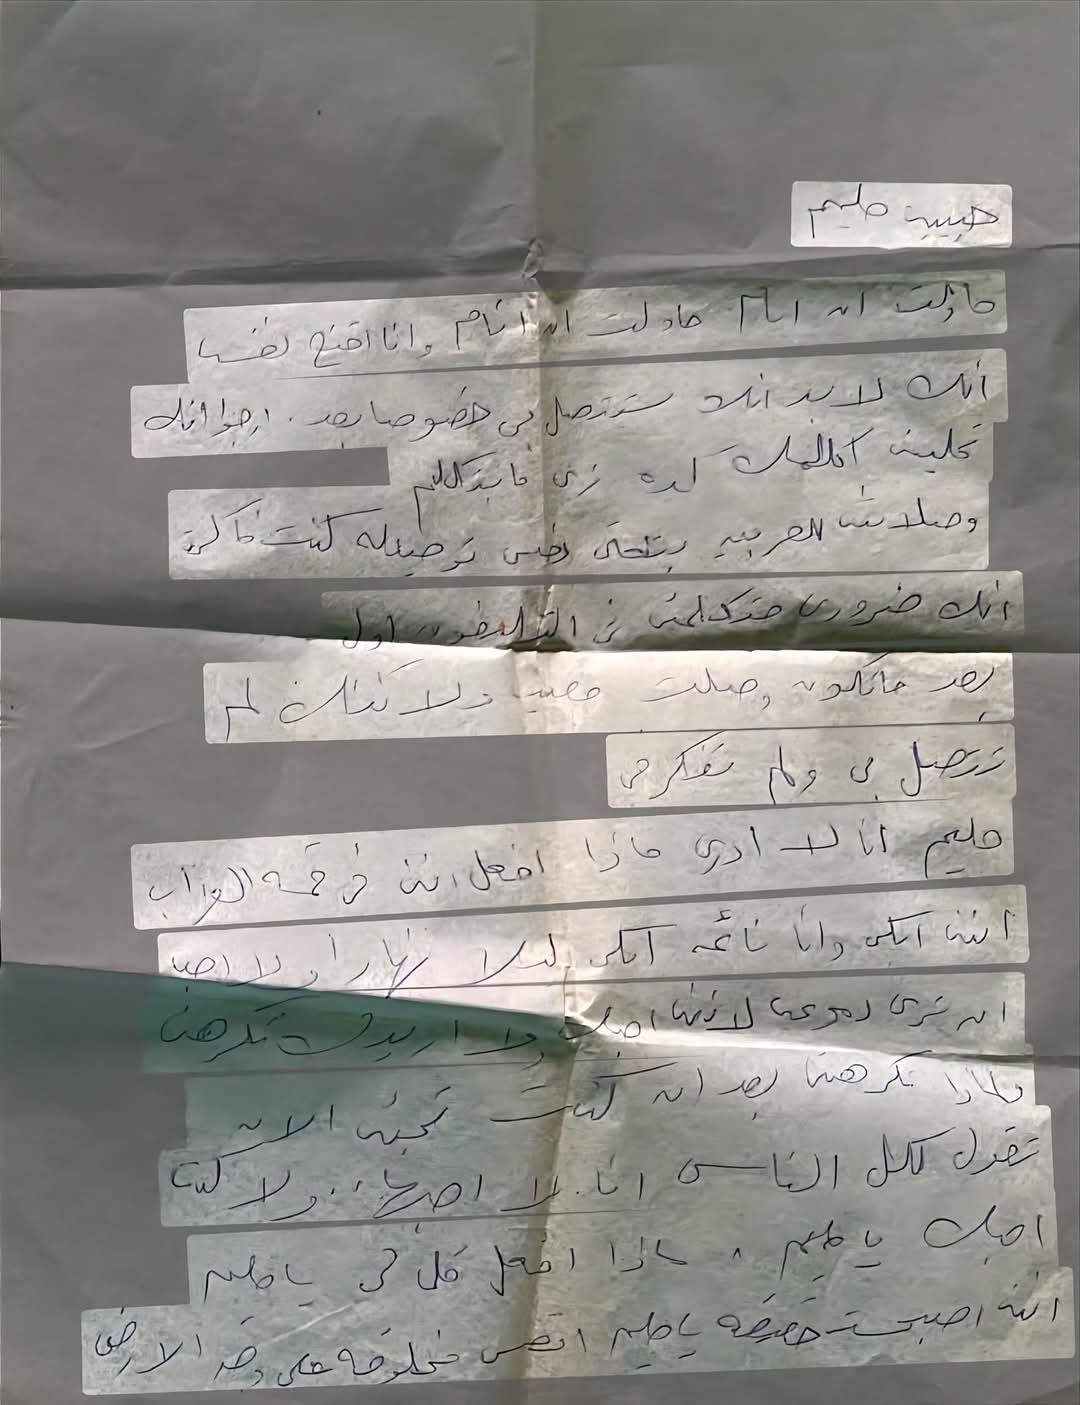 حبيبي حليم
حاولت ان انام حاولت ان انام وانا اقنع نفسي
انك لابد انك ستتصل بي خصوصا بعد . ارجوا انك
تخليني اكلمك كده زي ما بتكلم
وصلاتك للعربيه بتلحقني توصيله كنت فاكرة
انك ضروري حتكلمني في التليفون اول
بعد ماتكون وصلت ولاكنك لم
تتصل بي ولم تفكر في
حليم انا لا ادري ماذا افعل انني في قمه العذاب
انني ابكي وانا نائمه ابكي ليلا نهارا ولا احب
ان تري دموعي لانني احبك ولا اريدك تكرهني
ولماذا تكرهني بعد ان كنت تحبني الان
تقول لكل الناس انا لا احبها.. ولا كنت
احبك يا حليم . ماذا افعل قل لي يا حليم
انني اصبحت حقيقه يا حليم اتعس مخلوقه على وجه الارض